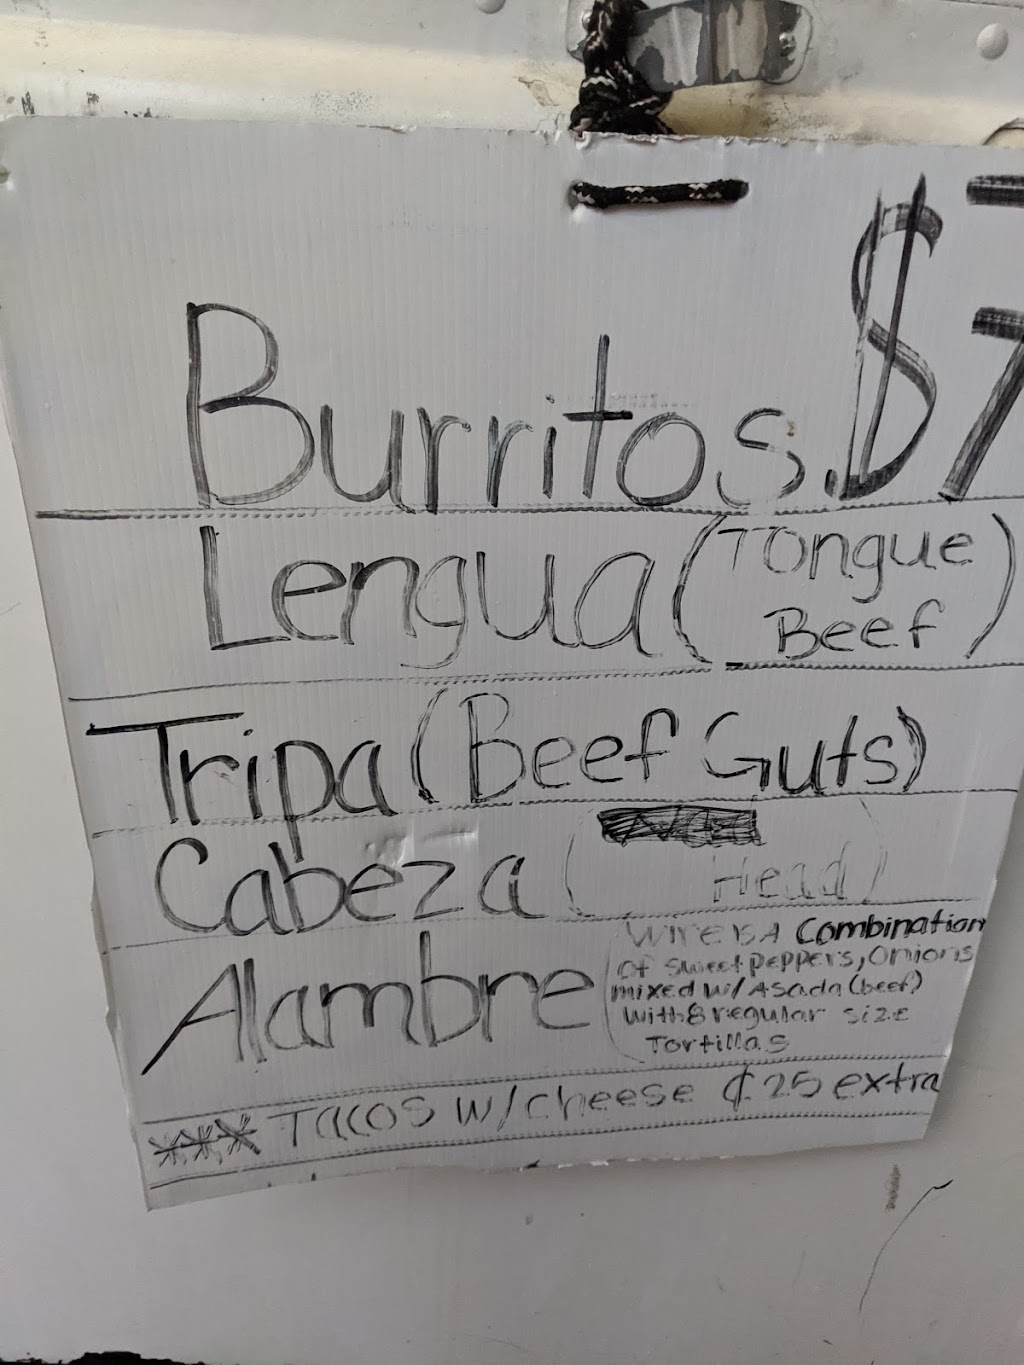 Burritos. $7
Lengua (Tongue
Beef)
Tripa (Beef Guts)
Cabeza (Head)
Alambre (Wire is A Combination
of sweet peppers, Onions
mixed w/ Asada (beef)
with 8 regular size
Tortillas
*** Tacos w/cheese ¢25 extra